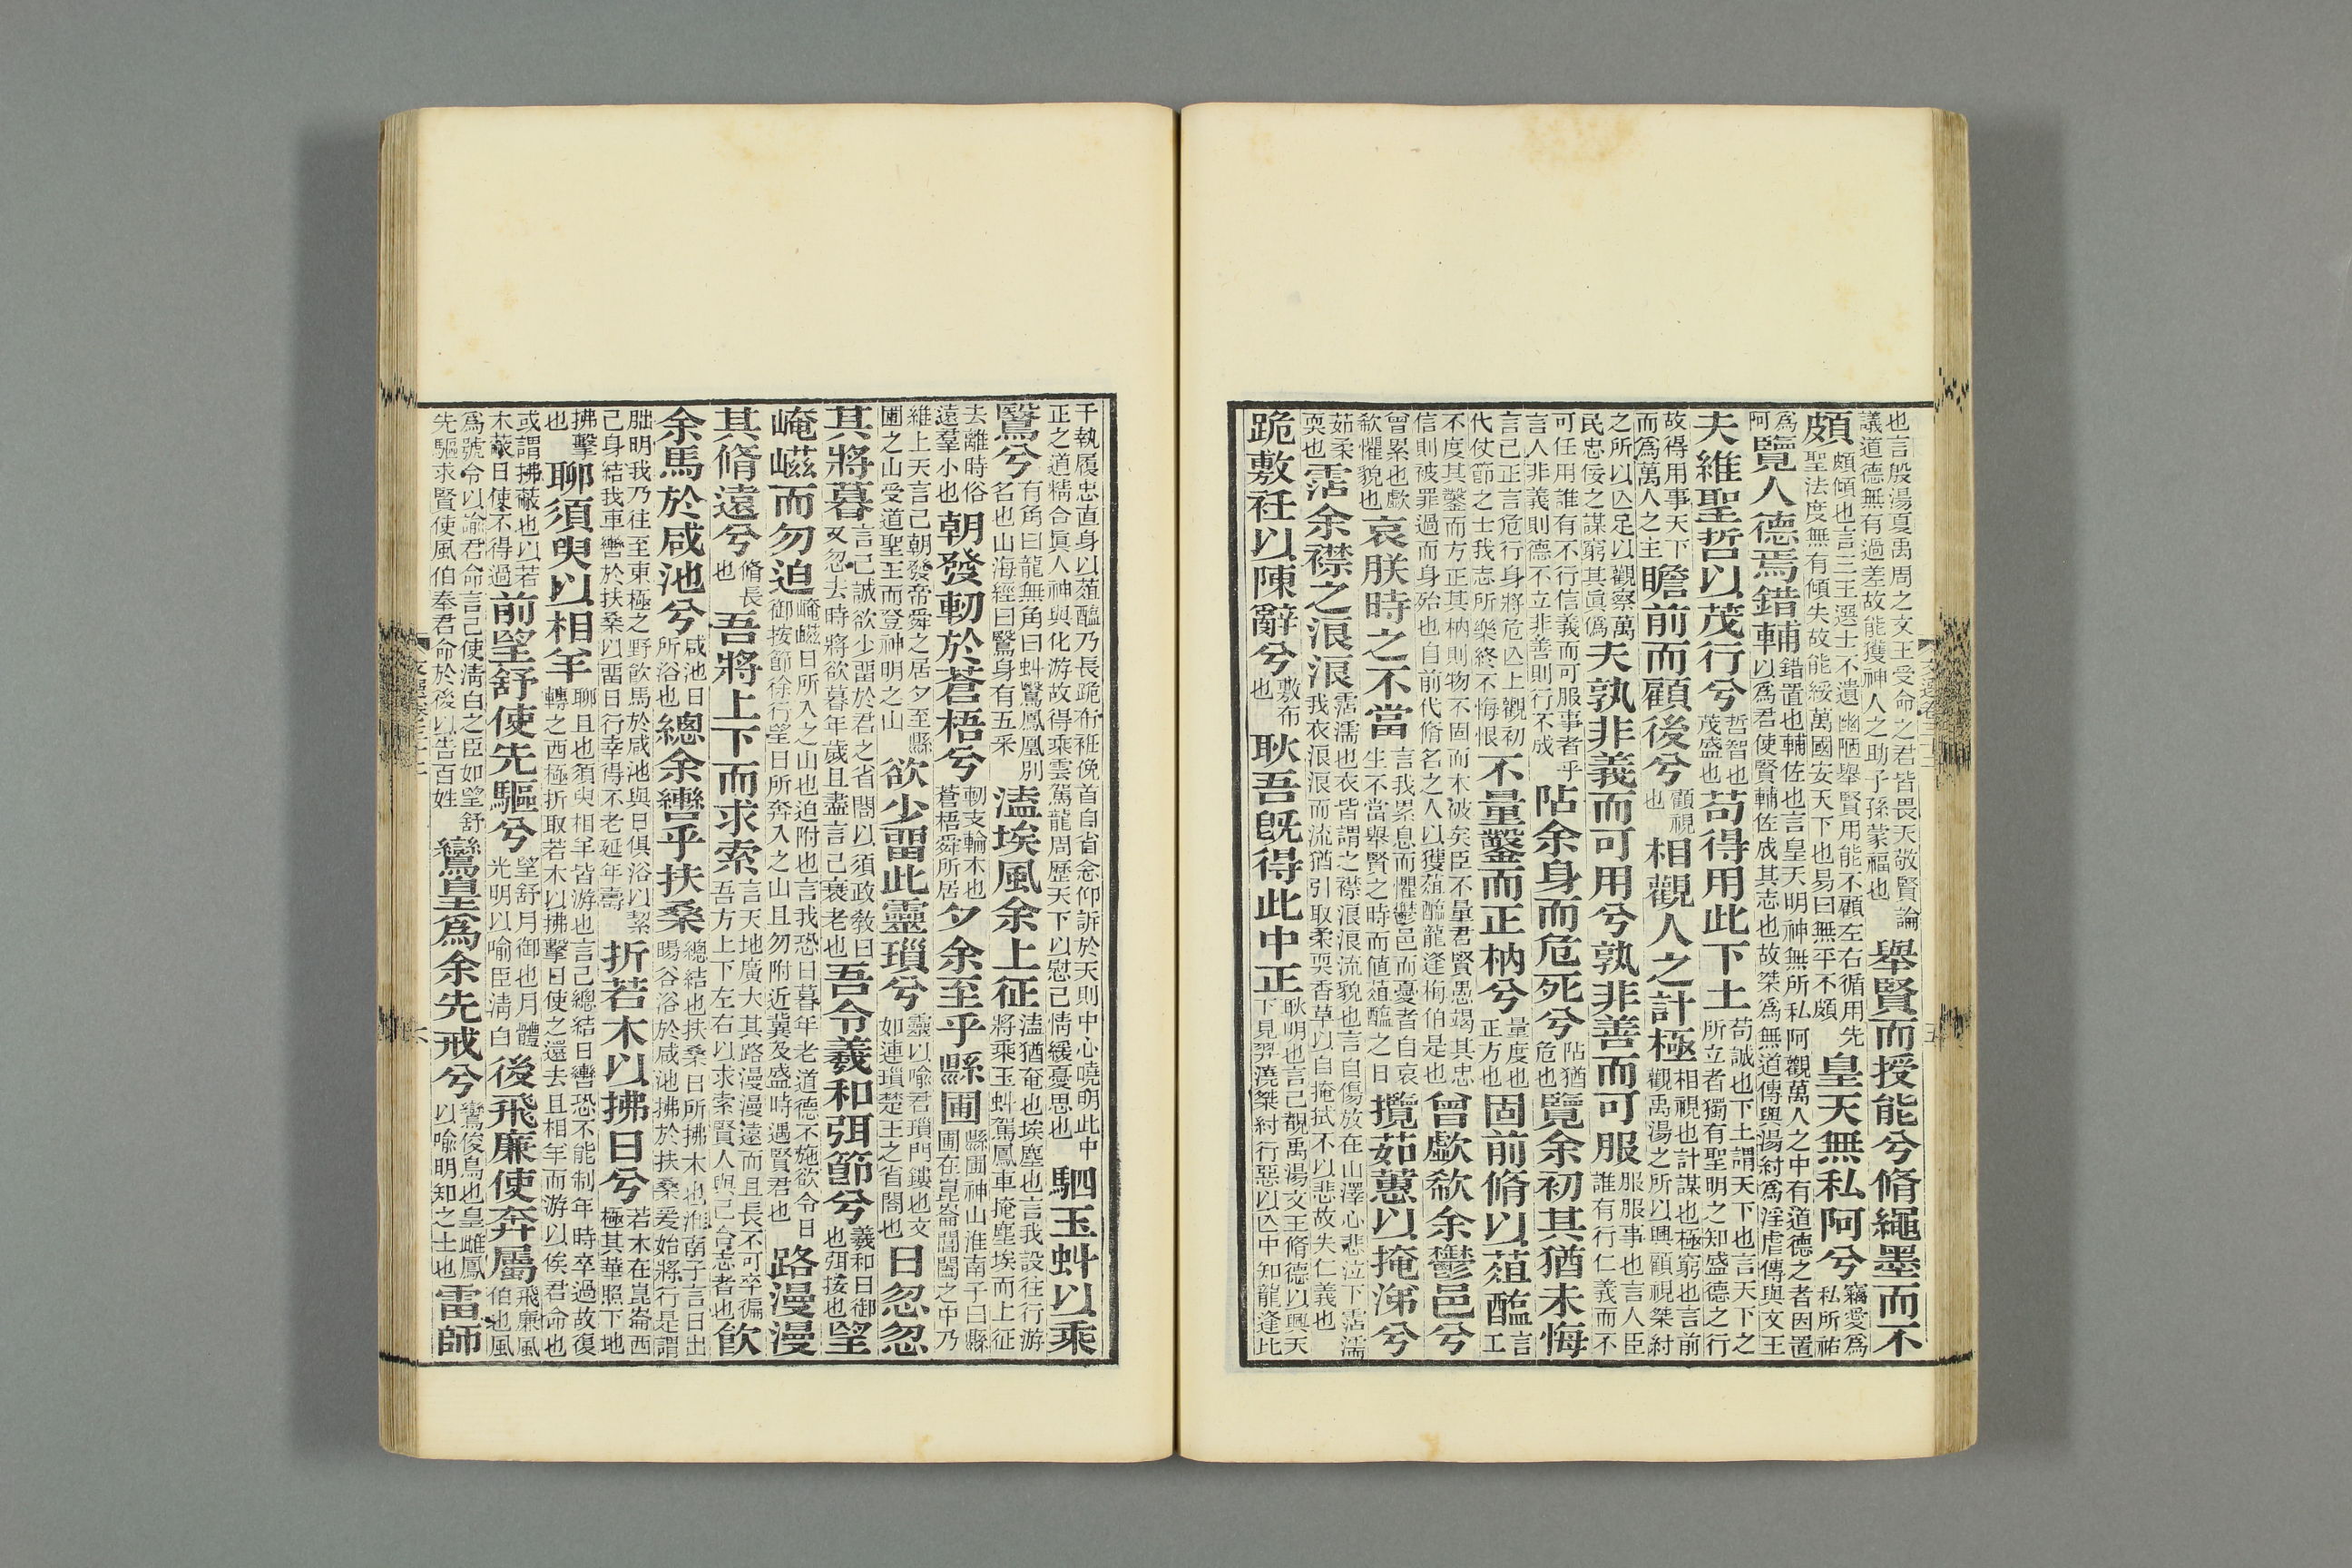 也言殷湯夏禹周之文王受命之君皆畏天敬賢論
議道德無有過差故能獲神人之助子孫蒙福也
舉賢而授能兮脩繩墨而不
頗
頗傾也言三王選士不遺幽陋舉賢用能不顧左右循用先
聖法度無有傾失故能綏萬國安天下也易曰無平不頗
皇天無私阿兮
竊愛爲
私所祐
爲
阿
覽人德焉錯輔
錯置也輔佐也言皇天明神無所私阿觀萬人之中有道德之者因置
以爲君使賢輔佐成其志也故桀爲無道傳與湯紂爲淫虐傳與文王
夫維聖哲以茂行兮
哲智也
茂盛也
苟得用此下土
苟誠也下土謂天下也言天下之
所立者獨有聖明之知盛德之行
故得用事天下
而爲萬人之主
瞻前而顧後兮
顧視
也
相觀人之計極
相視也計謀也極窮也言前
觀禹湯之所以興顧視桀紂
之所以亾足以觀察萬
民忠佞之謀窮其眞僞
夫孰非義而可用兮孰非善而可服
服服事也言人臣
誰有行仁義而不
可任用誰有不行信義而可服事者乎
言人非義則德不立非善則行不成
阽余身而危死兮
阽猶
危也
覽余初其猶未悔
言己正言危行身將危亾上觀初
代仗節之士我志所樂終不悔恨
不量鑿而正枘兮
量度也
正方也
固前脩以葅醢
言
工
不度其鑿而方正其枘則物不固而木破矣臣不量君賢愚竭其忠
信則被罪過而身殆也自前代脩名之人以獲葅醢龍逢梅伯是也
曾歔欷余鬱邑兮
曾累也歔
欷懼貌也
哀朕時之不當
言我累息而懼鬱邑而憂者自哀
生不當舉賢之時而值葅醢之日
攬茹蕙以掩涕兮
茹柔
耎也
霑余襟之浪浪
霑濡也衣眥謂之襟浪浪流貌也言自傷放在山澤心悲泣下霑濡
我衣浪浪而流猶引取柔耎香草以自掩拭不以悲故失仁義也
跪敷衽以陳辭兮
敷布
也
耿吾旣得此中正
耿明也言己覩禹湯文王脩德以興天
下見羿澆桀紂行惡以亾中知龍逢比
子執履忠直身以葅醢乃長跪布衽俛首自省念仰訴於天則中心曉明此中
正之道精合眞人神與化游故得乘雲駕龍周歷天下以慰己情緩憂思也
駟玉虯以乘
鷖兮
有角曰龍無角曰虯鷖鳳凰別
名也山海經曰鷖身有五采
溘埃風余上征
溘猶奄也埃塵也言我設往行游
將乘玉虯駕鳳車掩塵埃而上征
去離時俗
遠羣小也
朝發軔於蒼梧兮
軔支輪木也
蒼梧舜所居
夕余至乎縣圃
縣圃神山淮南子曰縣
圃在崑崙閶闔之中乃
維上天言己朝發帝舜之居夕至縣
圃之山受道聖王而登神明之山
欲少留此靈瑣兮
靈以喻君瑣門鏤也文
如連瑣楚王之省閤也
日忽忽
其將暮
言己誠欲少留於君之省閤以須政敎日
又忽去時將欲暮年歲且盡言己衰老也
吾令羲和弭節兮
羲和日御
也弭按也
望
崦嵫而勿迫
崦嵫日所入之山也迫附也言我恐日暮年老道德不施欲令日
御按節徐行望日所奔入之山且勿附近冀及盛時遇賢君也
路漫漫
其脩遠兮
脩長
也
吾將上下而求索
言天地廣大其路漫漫遠而且長不可卒徧
吾方上下左右以求索賢人與己合志者也
飮
余馬於咸池兮
咸池日
所浴也
總余轡乎扶桑
總結也扶桑日所拂木也淮南子言日出
暘谷浴於咸池拂於扶桑爰始將行是謂
朏明我乃往至東極之野飮馬於咸池與日俱浴以絜
己身結我車轡於扶桑以留日行幸得不老延年壽
折若木以拂日兮
若木在崑崙西
極其華照下地
拂擊
也
聊須臾以相羊
聊且也須臾相羊皆游也言己總結日轡恐不能制年時卒過故復
轉之西極折取若木以拂擊日使之還去且相羊而游以俟君命也
或謂拂蔽也以若
木蔽日使不得過
前望舒使先驅兮
望舒月御也月體
光明以喻臣淸白
後飛廉使奔屬
飛廉風
伯也風
爲號令以諭君命言己使淸白之臣如望舒
先驅求賢使風伯奉君命於後以告百姓
鸞皇爲余先戒兮
鸞俊鳥也皇雌鳳
以喻明知之士也
雷師